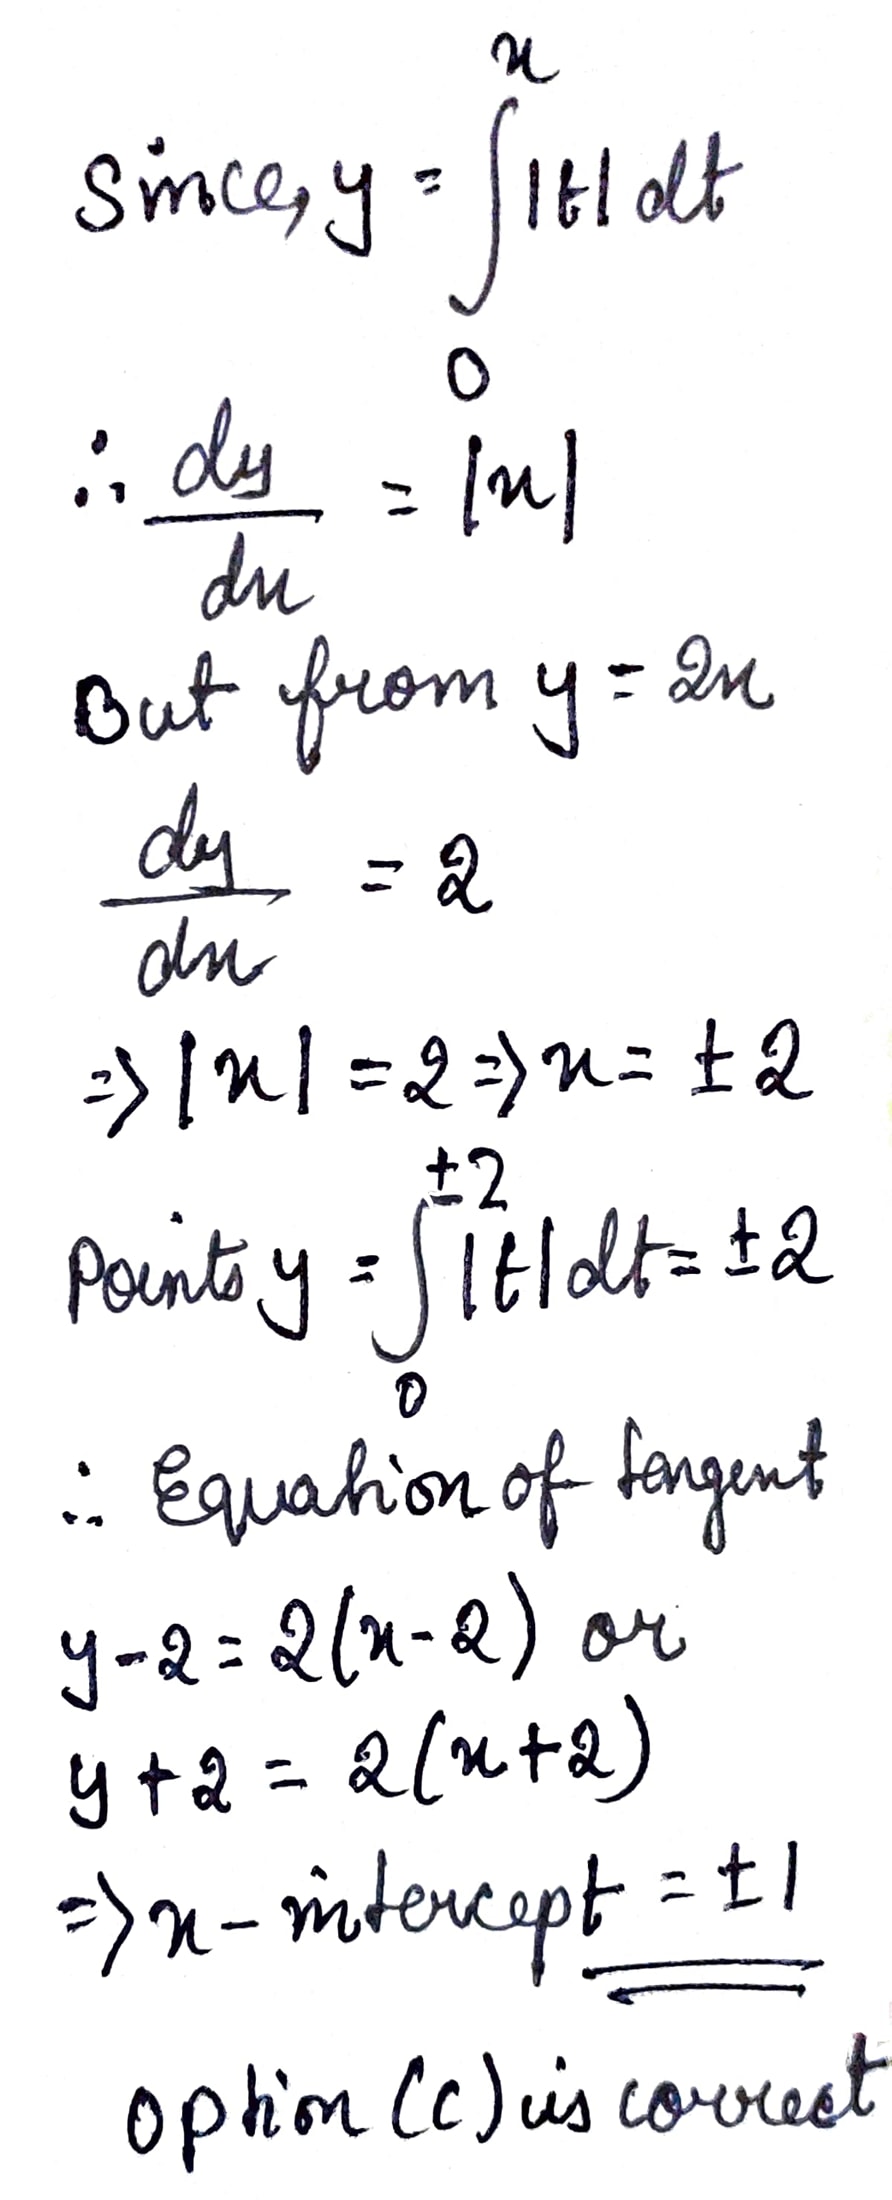 Since, y = ∫₀ˣ |t| dt
∴ dy/dx = |x|
But from y = 2x
dy/dx = 2
⇒ |x| = 2 ⇒ x = ± 2
Points y = ∫₀^±2 |t| dt = ±2
∴ Equation of tangent
y - 2 = 2(x - 2) or
y + 2 = 2(x + 2)
⇒ x - intercept = ±1
option (c) is correct